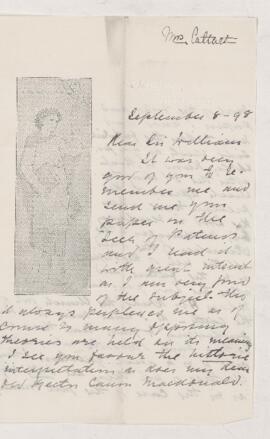 Mrs. Pattart
September 8 - 98
Dear Sir William
It was very
good of you to re-
member me and
send me your
paper on the
Book of
and I read it
with great interest
as I am very fond
of the subject tho
it always perplexes me as of
course so many opposing
theories are held on its meaning
I see you favour the historic
interpretation as does my dear
old Rector Canon Macdonald.